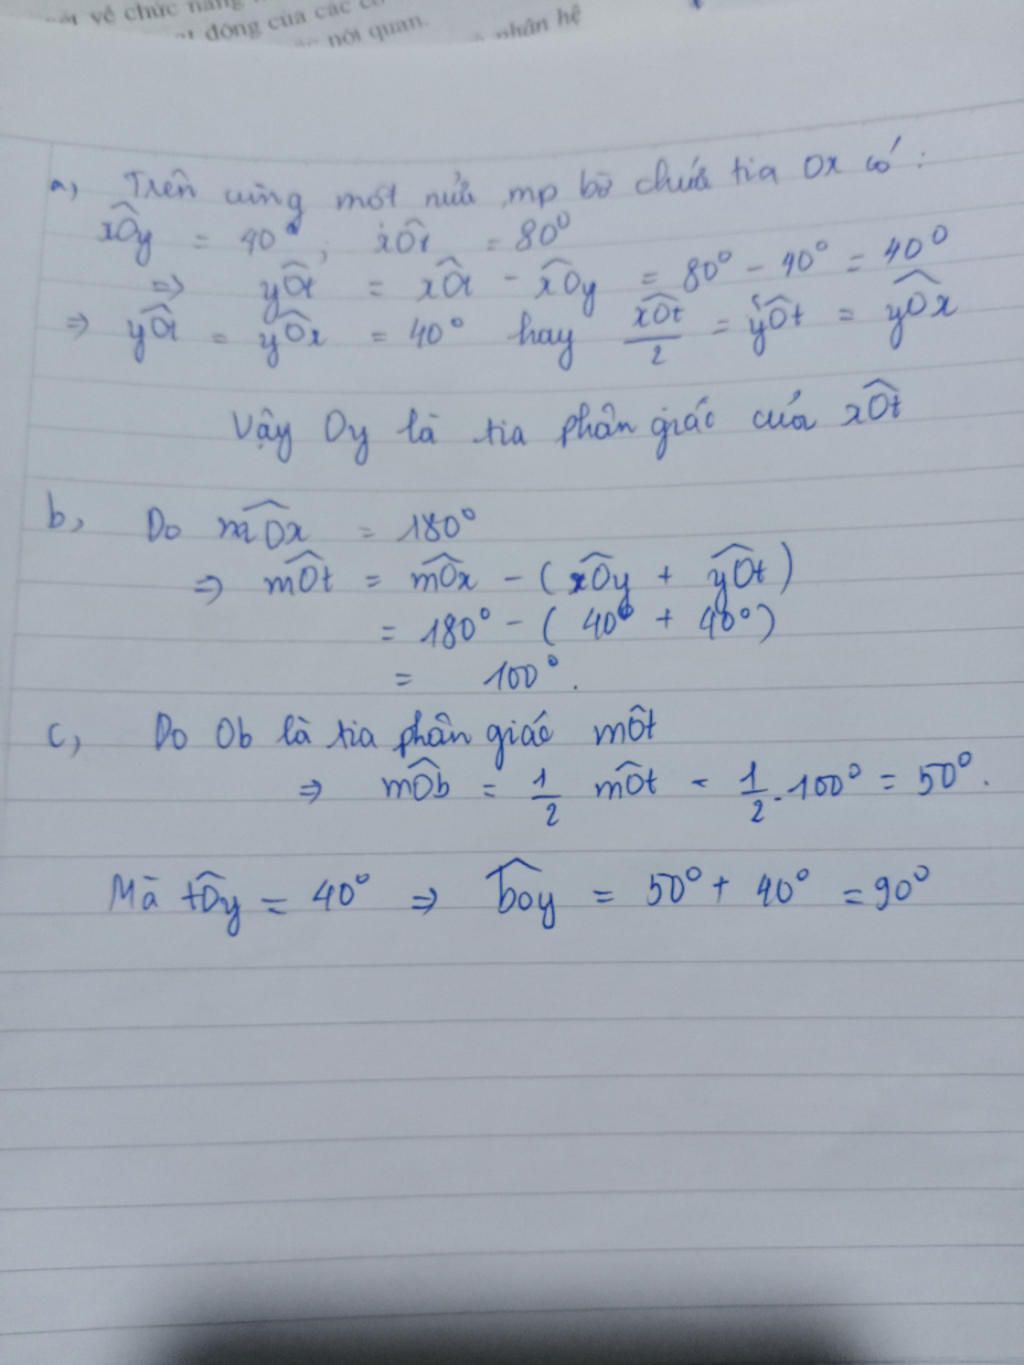 về chức năng
động của các cơ
nội quan.
phân hệ
a, Trên cùng một nửa mp bờ chứa tia Ox có:
xÔy = 40°; xÔt = 80°
⇒ yÔt = xÔt - xÔy = 80° - 40° = 40°
⇒ yÔt = yÔx = 40° hay xÔt/2 = yÔt = yÔx
Vậy Oy là tia phân giác của xÔt
b, Do mÔx = 180°
⇒ mÔt = mÔx - (xÔy + yÔt)
= 180° - (40° + 40°)
= 100°.
c, Do Ob là tia phân giác mÔt
⇒ mÔb = 1/2 mÔt = 1/2 . 100° = 50°.
Mà tÔy = 40° ⇒ bÔy = 50° + 40° = 90°